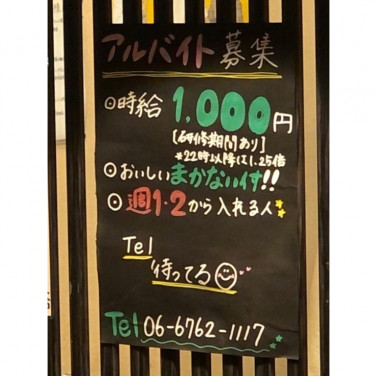 アルバイト募集
◎時給1,000円
[研修期間あり]
*22時以降は1.25倍
◎おいしいまかない付!!
◎週1・2から入れる人
Tel
待ってる
Tel 06-6762-1117